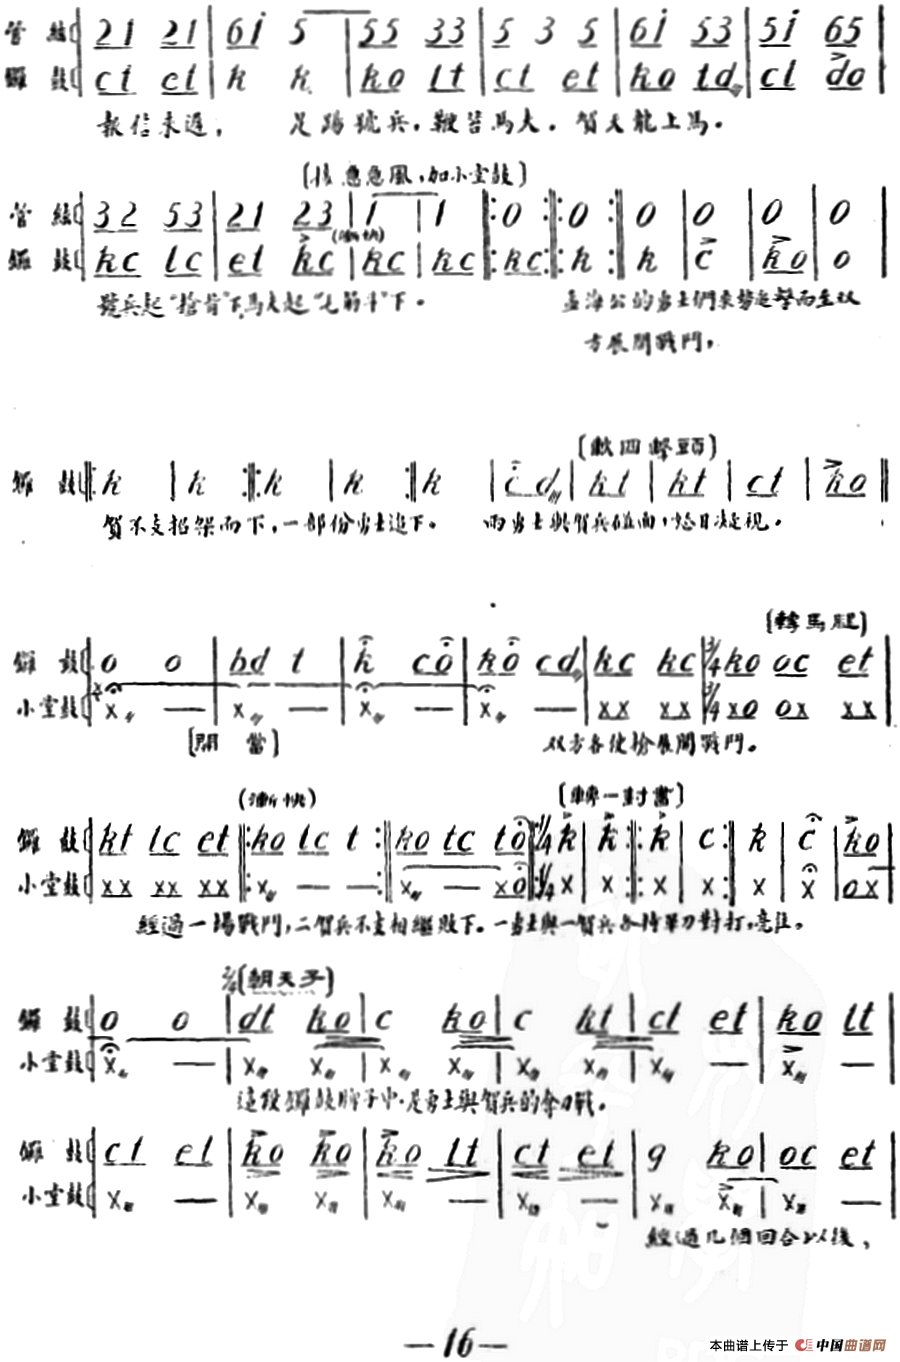 管 絃 21 21 | 6i 5 | 55 33 | 5 3 5 | 6i 53 | 5i 65 |
鑼 鼓 ct et | k k | ko lt | ct et | ko td | ct do |
報信來遲, 兵,鞭 馬大。賀天龍上馬。
(接急急風,加小堂鼓)
管 絃 32 53 | 21 23 | 1 | 1 ‖: 0 :‖: 0 :‖ 0 | 0 | 0 | 0 |
(漸快)
鑼 鼓 kc lc | et kc | kc | kc ‖: kc :‖: k :‖ k | c | ko | o |
號兵起“搶背”下,馬大起“ 筋斗”下。 孟海公的勇士們乘勢追擊而至双
方展開戰鬥,
(軟四擊頭)
鑼 鼓 ‖: k | k :‖: k | k :‖ k | c d | kt | kt | ct | ko ‖
賀不支招架而下,一部份勇士追下。 兩勇士與賀兵碰面, 目凝視。
(轉馬腿)
鑼 鼓 o o | bd t | k co | ko cd | kc kc | 3/4 ko oc et |
小堂鼓 x — | x — | x — | x — | xx xx | 3/4 xo ox xx |
(開 當) 双方各使槍展開戰鬥。
(漸快) (轉一對當)
鑼 鼓 kt lc et ‖: ko lc t :‖ ko tc to 1/4 k | k :‖: k | c :‖ k | c | ko |
小堂鼓 xx xx xx ‖: x — — :‖ x — xo 1/4 x | x :‖: x | x :‖ x | x | ox |
經過一場戰鬥,二賀兵不支相繼敗下。一勇士與一賀兵各持單刀對打,亮住,
2/4 (朝天子)
鑼 鼓 o o | dt ko | c ko | c kt | ct et | ko lt |
小堂鼓 x — | x x | x x | x x | x — | x — |
這段鑼鼓牌子中,是勇士與賀兵的奪刀戰。
鑼 鼓 ct et | ko ko | ko lt | ct et | g ko | oc et |
小堂鼓 x — | x x | x — | x — | x x | x — |
經過几個回合以後,
—16—
本曲谱上传于 中国曲谱网